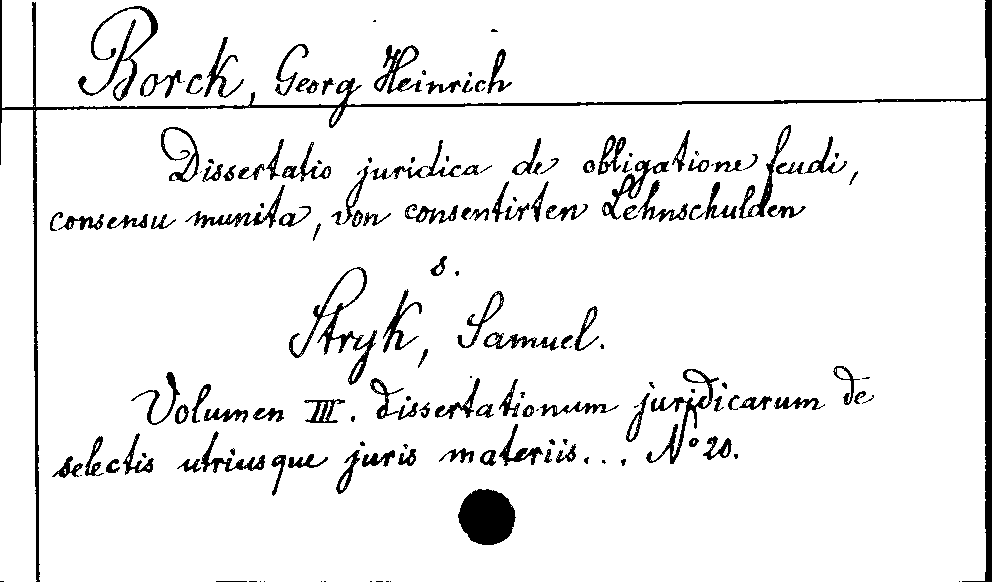 Borck, Georg Heinrich
Dissertatio juridica de obligatione feudi,
consensu munita, von consentirten Lehnschulden
s.
Stryk, Samuel.
Volumen III. dissertationum juridicarum de
selectis utriusque juris materiis... No 20.